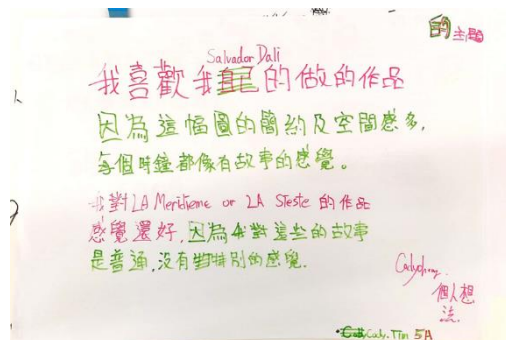 的主題
Salvador Dali
我喜歡我自己的做的作品
因為這幅圖的簡約及空間感多,
每個時鐘都像有故事的感覺。
我對LA Meridieme or LA Sieste 的作品
感覺還好,因為我對這些的故事
是普通,沒有特別的感覺.
個人想
法.
5A